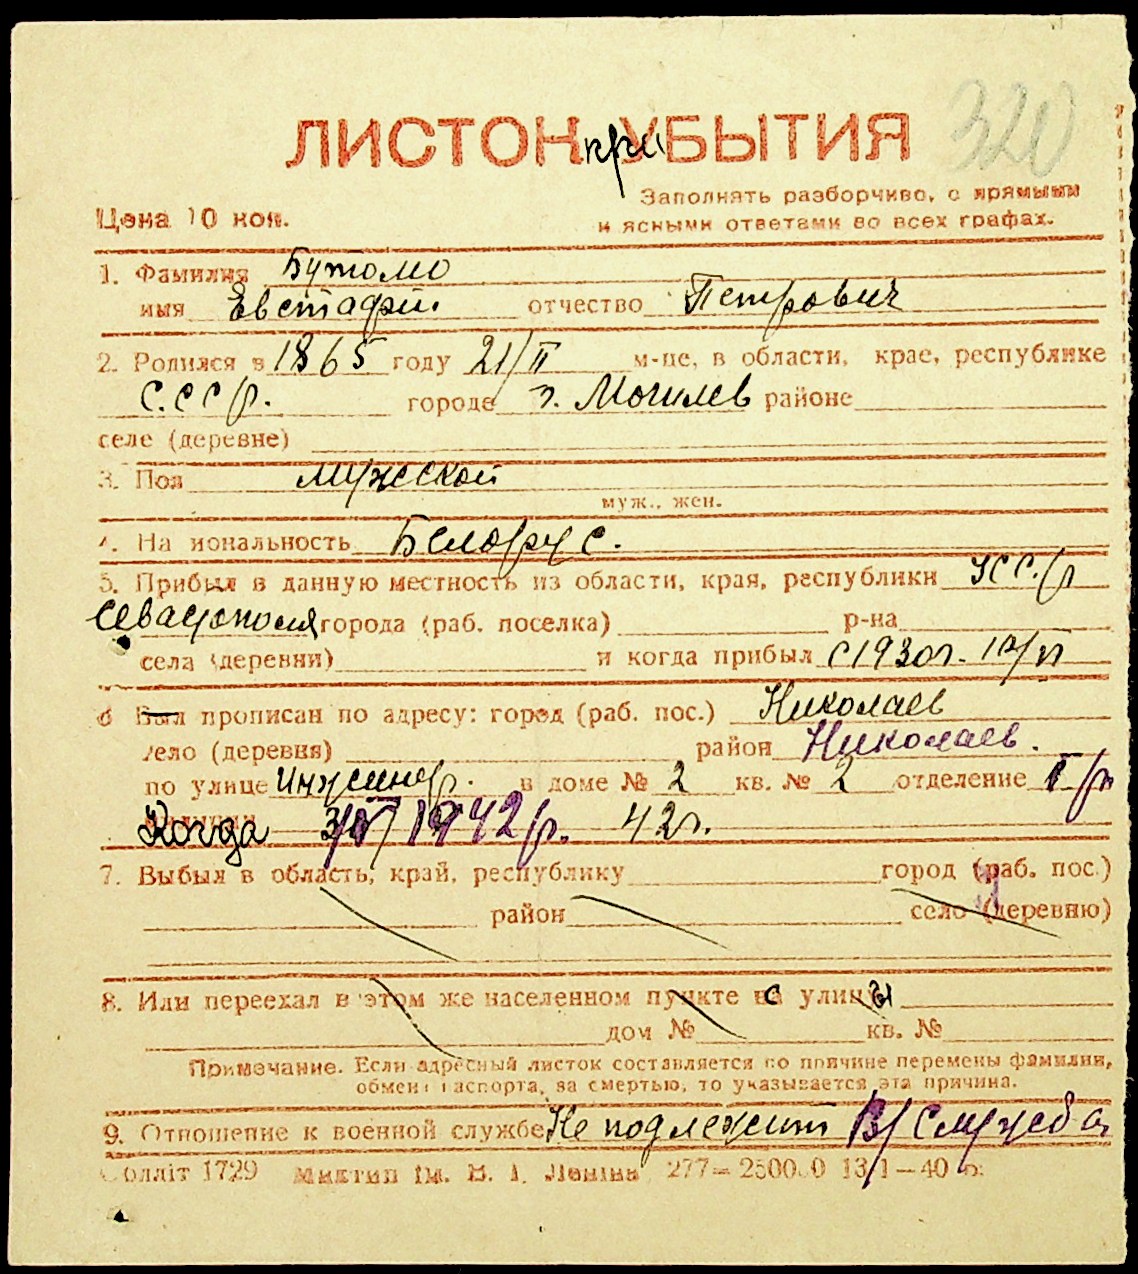 320
ЛИСТОК при УБЫТИЯ
Заполнять разборчиво, с прямыми
Цена 10 коп.
и ясными ответами во всех графах.
1. Фамилия Бутомо
имя Евстафий отчество Петрович
2. Родился в 1865 году 21/II м-це, в области, крае, республике
С.ССР. городе г. Могилев районе
селе (деревне)
3. Пол мужской
муж., жен.
4. На иональность Белорус.
5. Прибыл в данную местность из области, края, республики УССР
Севастополя города (раб. поселка) р-на
села (деревни) и когда прибыл с 1930г.
6 Был прописан по адресу: город (раб. пос.) Николаев
село (деревня) район Николаев.
по улице Инженер. в доме № 2 кв. № 2 отделение I р
Когда 1942г. 42г.
7. Выбыл в область, край, республику город (раб. пос.)
район село (деревню)
8. Или переехал в этом же населенном пункте с улицы
дом № кв. №
Примечание. Если адресный листок составляется по причине перемены фамилии,
обмена паспорта, за смертью, то указывается эта причина.
9. Отношение к военной службе Не подлежит В/Службе
Облліт 1729 Миктип ім. В. І. Леніна 277—250000 13/1—40 р.